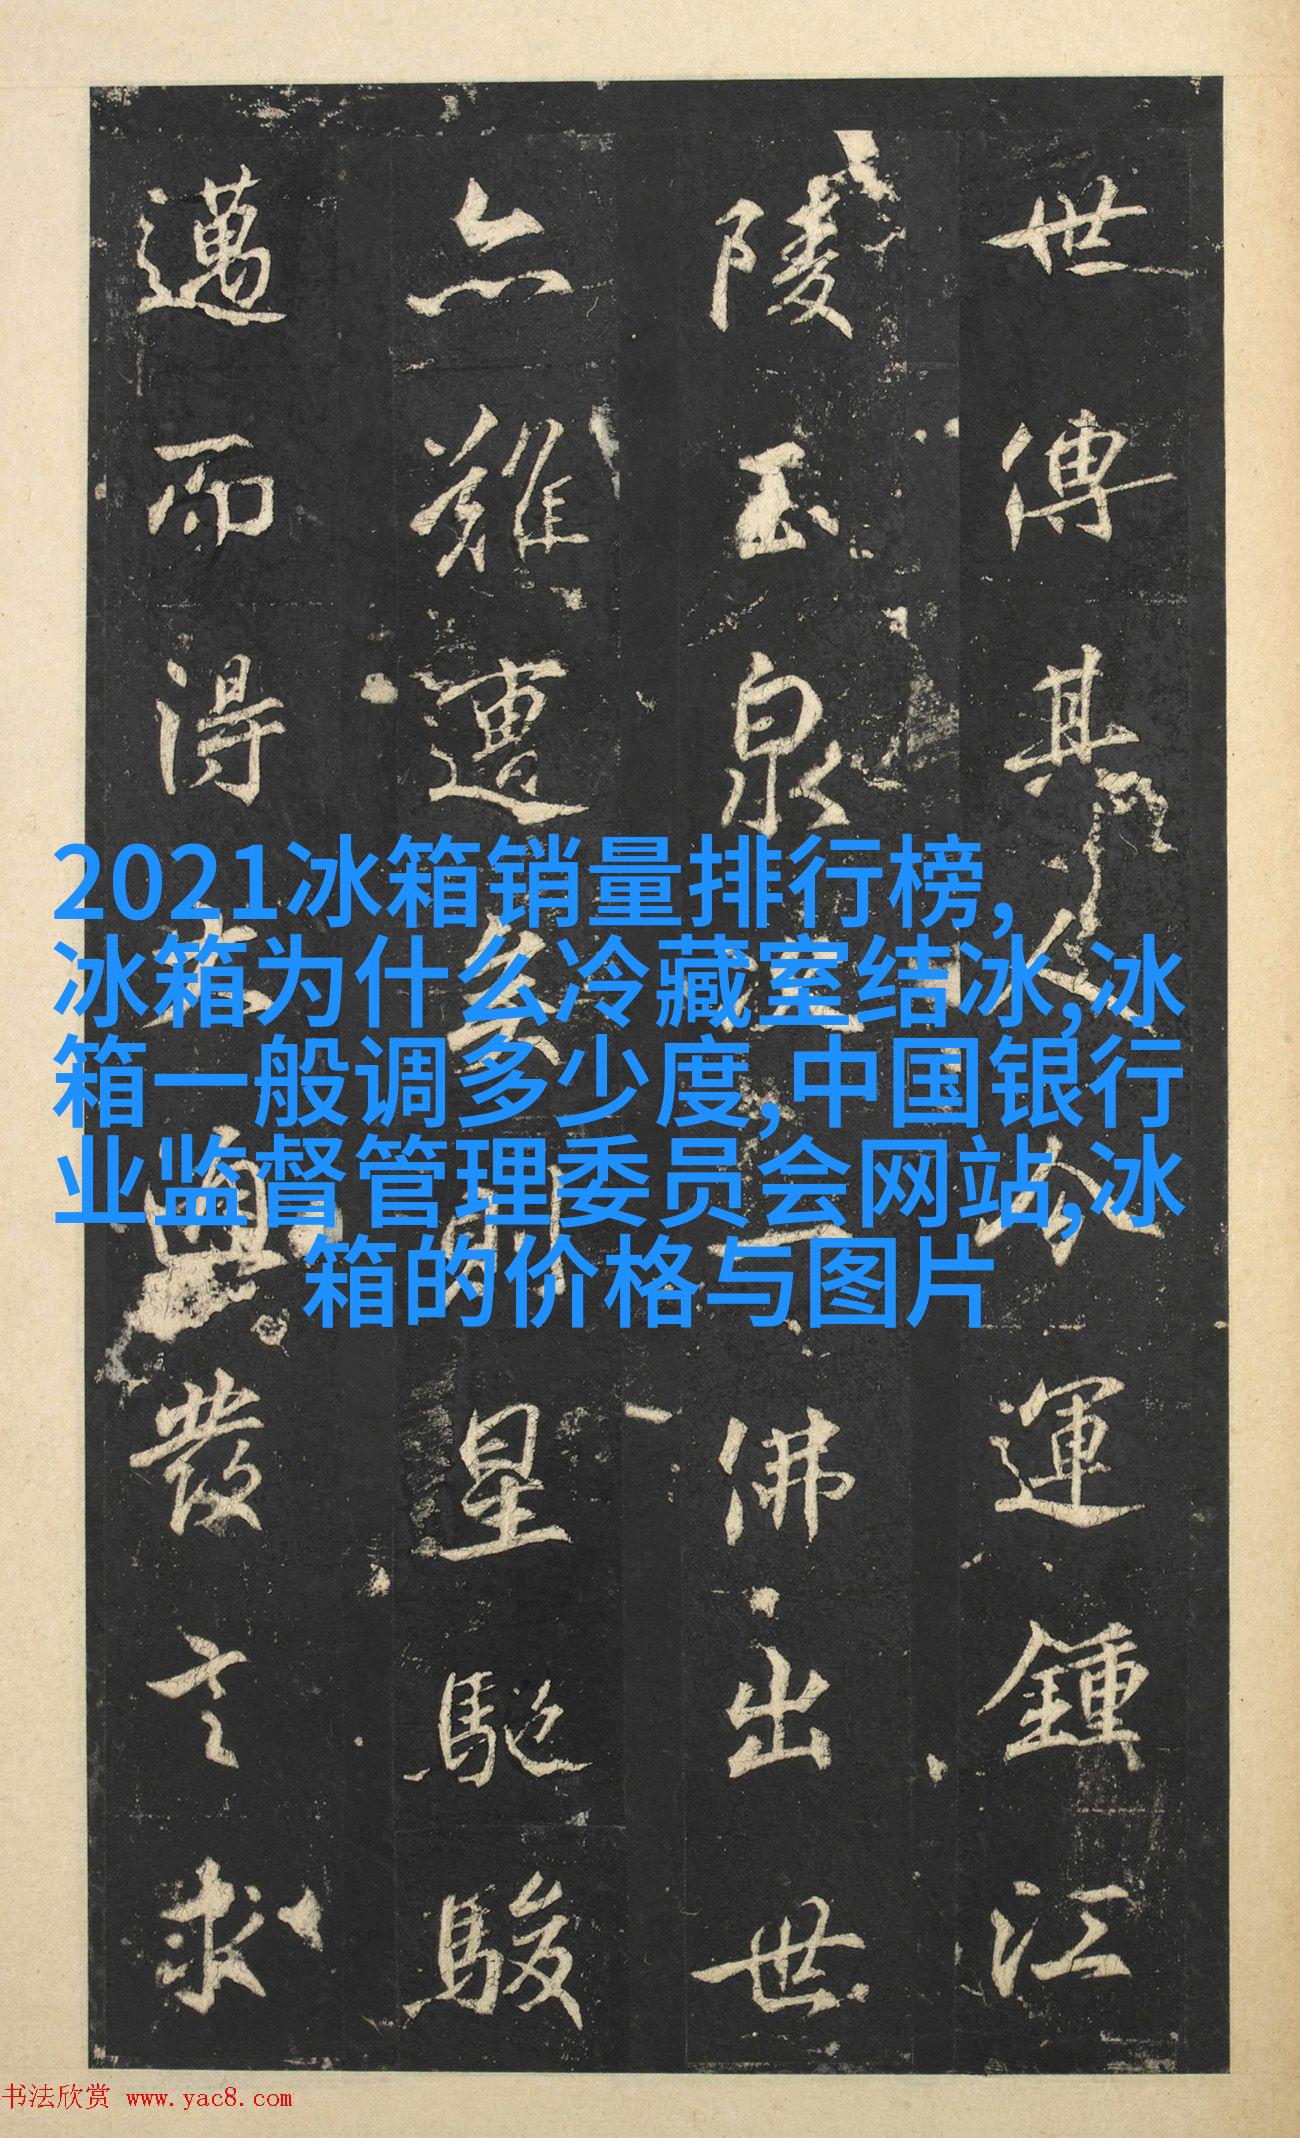 世傳其人運鍾江
陵玉泉一佛出世
亦難遭星馳駿
邁而得興發求
2021冰箱销量排行榜,
冰箱为什么冷藏室结冰,冰
箱一般调多少度,中国银行
业监督管理委员会网站,冰
箱的价格与图片
书法欣赏 www.yac8.com